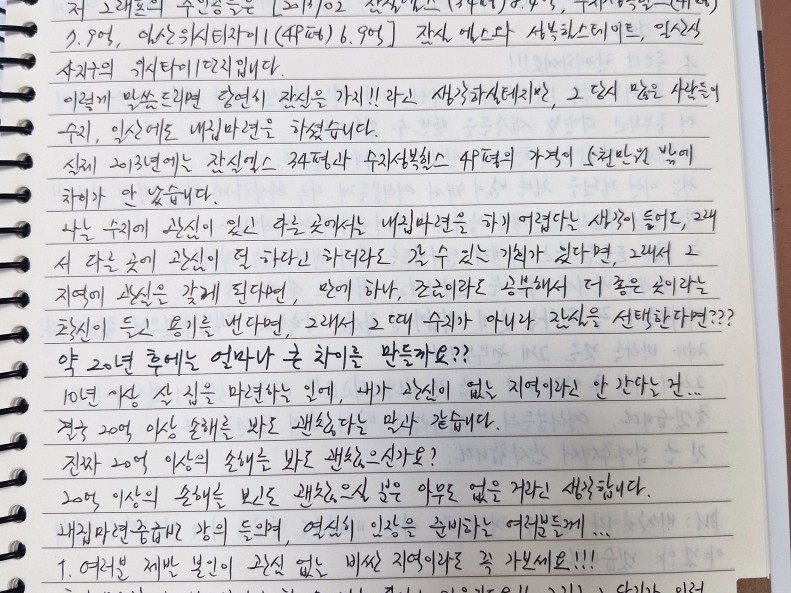 저 그래프의 주인공들은 [2013/02 잠실엘스 (34평) 8.4억, 수지성복힐스(49평)
7.9억, 일산위시티자이1 (48평) 6.9억] 잠실 엘스와 성복힐스테이트, 일산식
사지구의 위시티자이1단지입니다.
이렇게 말씀드리면 당연히 잠실을 가지!! 라고 생각하실테지만, 그 당시 많은 사람들이
수지, 일산에도 내집마련을 하셨습니다.
실제 2013년에는 잠실엘스 34평과 수지성복힐스 49평의 가격이 5천만원 밖에
차이가 안 났습니다.
나는 수지에 관심이 있고 다른 곳에서는 내집마련을 하기 어렵다는 생각이 들어도, 그래
서 다른 곳에 관심이 덜 하다고 하더라도 갈 수 있는 기회가 있다면, 그래서 그
지역에 관심을 갖게 된다면, 만에 하나, 조금이라도 공부해서 더 좋은 곳이라는
확신이 들고 용기를 낸다면, 그래서 그 때 수지가 아니라 잠실을 선택한다면???
약 20년 후에는 얼마나 큰 차이를 만들까요??
10년 이상 살 집을 마련하는 일에, 내가 관심이 없는 지역이라고 안 간다는건...
결국 20억 이상 손해를 봐도 괜찮다는 말과 같습니다.
진짜 20억 이상의 손해를 봐도 괜찮으신가요?
20억 이상의 손해를 보고도 괜찮으실 분은 아무도 없을 거라고 생각합니다.
내집마련중급반 강의 들으며, 열심히 임장을 준비하는 여러분들께...
1. 여러분 제발 본인이 관심 없는 비싼 지역이라도 꼭 가보세요!!!